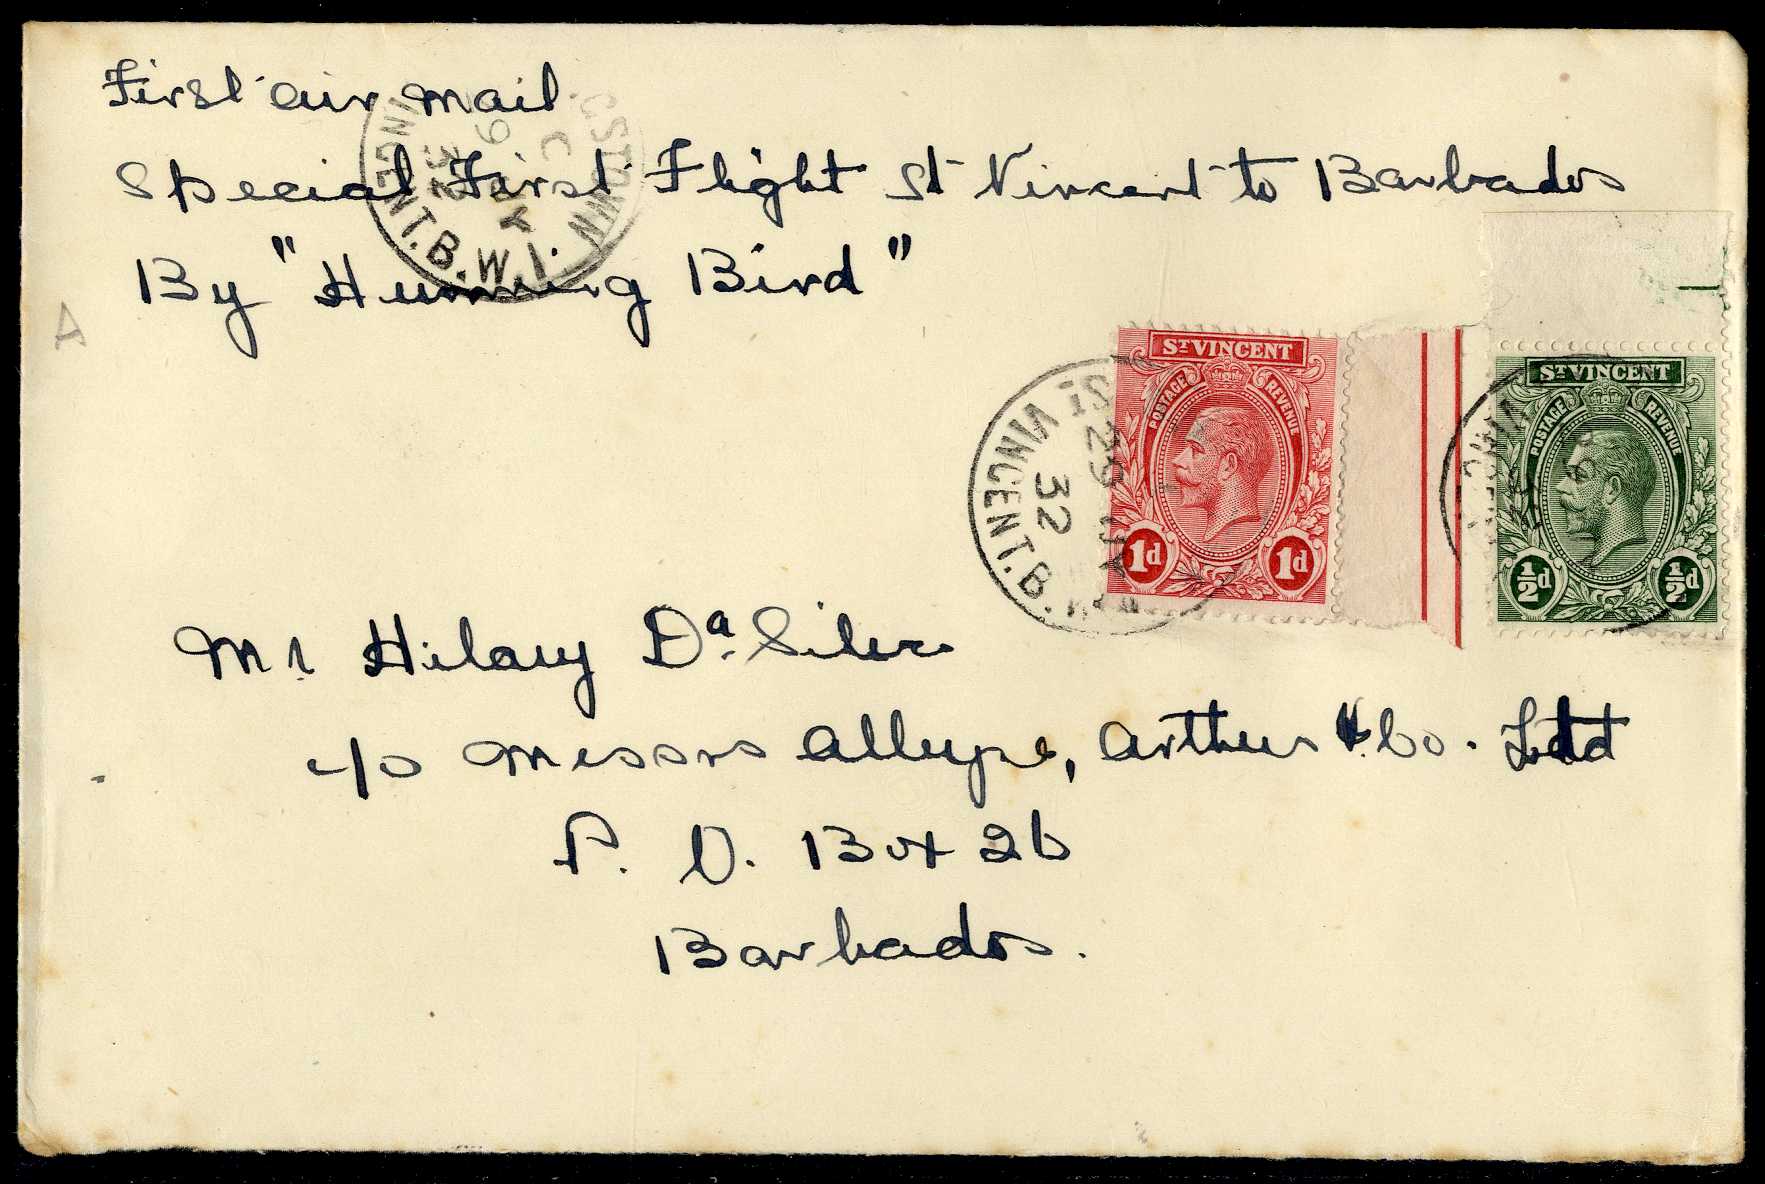 First air mail
Special First Flight St Vincent to Barbados
By "Humming Bird"
C
9 JY
32
INGSTOWN
ST. VINCENT. B.W.I.
A
ST VINCENT
POSTAGE REVENUE
1d 1d
ST VINCENT
POSTAGE REVENUE
½d ½d
29 JY
32
ST VINCENT. B.W.I.
Mr Hilary Da. Silva
c/o Messrs Alleyne, Arthur & Co. Ltd
P. O. Box 26
Barbados.